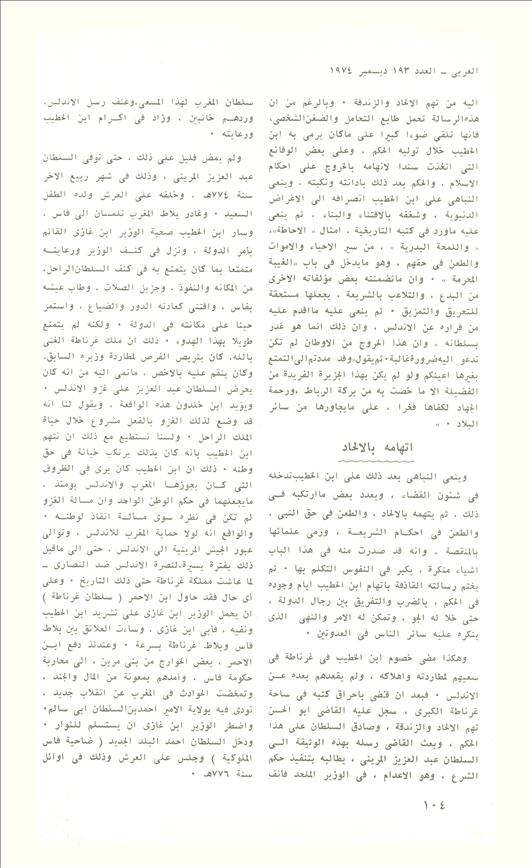 العربي – العدد ١٩٣ ديسمبر ١٩٧٤
اليه من تهم الالحاد والزندقة · وبالرغم من ان
هذه الرسالة تحمل طابع التحامل والضغن الشخصى،
فانها تلقى ضوءا كبيرا على ماكان يرمى به ابن
الخطيب خلال توليه الحكم ، وعلى بعض الوقائع
التى اتخذت سندا لاتهامه بالخروج على احكام
الاسلام ، والحكم بعد ذلك بادانته ونكبته ، وينعى
النباهى على ابن الخطيب انصرافه الى الاغراض
الدنيوية ، وشغفه بالاقتناء والبناء ، ثم ينعى
عليه ماورد فى كتبه التاريخية ، امثال « الاحاطة»،
« واللمحة البدرية » ، من سير الاحياء والاموات
والطعن فى حقهم ، وهو مايدخل فى باب «الغيبة
المحرمة » · وان ماتضمنته بعض مؤلفاته الاخرى
من البدع ، والتلاعب بالشريعة ، يجعلها مستحقة
للتحريق والتمزيق · ثم ينعى عليه مااقدم عليه
من فراره عن الاندلس ، وان ذلك انما هو غدر
بسلطانه ، وان هذا الخروج من الاوطان لم تكن
تدعو اليه ضرورة غالبة · ثم يقول«وقد مددتم الى التمتع
بغيرها اعينكم ولو لم يكن بهذه الجزيرة الفريدة من
الفضيلة الا ما خصت به من بركة الرباط ،ورحمة
الجهاد لكفاها فخرا ، على مايجاورها من سائر
البلاد · »
اتهامه بالالحاد
وينعى النباهى بعد ذلك على ابن الخطيب تدخله
فى شئون القضاء ، ويعدد بعض ماارتكبه فى
ذلك · ثم يتهمه بالالحاد ، والطعن فى حق النبى ،
والطعن فى احكام الشريعة ، ورمى علمائها
بالمنقصة ، وانه قد صدرت منه فى هذا الباب
اشياء منكرة ، يكبر فى النفوس التكلم بها · ثم
يختم رسالته القاذفة باتهام ابن الخطيب ايام وجوده
فى الحكم ، بالضرب والتفريق بين رجال الدولة ،
حتى خلا له الجو ، وتمكن له الامر والنهى الذى
ينكره عليه سائر الناس فى العدوتين ·
وهكذا مضى خصوم ابن الخطيب فى غرناطة فى
سعيهم لمطاردته واهلاكه ، ولم يقعدهم بعده عن
الاندلس · فبعد ان قضى باحراق كتبه فى ساحة
غرناطة الكبرى ، سجل عليه القاضى ابو الحسن
تهم الالحاد والزندقة ، وصادق السلطان على هذا
الحكم ، وبعث القاضى رسله بهذه الوثيقة الى
السلطان عبد العزيز المرينى ، يطالبه بتنفيذ حكم
الشرع ، وهو الاعدام ، فى الوزير الملحد فانف
سلطان المغرب لهذا المسعى،وعنف رسل الاندلس،
وردهم خائبين ، وزاد فى اكرام ابن الخطيب
ورعايته ·
ولم يمض قليل على ذلك ، حتى توفى السلطان
عبد العزيز المرينى ، وذلك فى شهر ربيع الاخر
سنة ٧٧٤هـ ، وخلفه على العرش ولده الطفل
السعيد · وغادر بلاط المغرب تلمسان الى فاس ،
وسار ابن الخطيب صحبة الوزير ابن غازى القائم
بامر الدولة ، ونزل فى كنف الوزير ورعايته
متمتعا بما كان يتمتع به فى كنف السلطان الراحل،
من المكانه والنفوذ ، وجزيل الصلات ، وطاب عيشه
بفاس ، واقتنى كعادته الدور والضياع ، واستمر
حينا على مكانته فى الدولة · ولكنه لم يتمتع
طويلا بهذا الهدوء · ذلك ان ملك غرناطة الغنى
بالله، كان يتربص الفرص لمطاردة وزيره السابق،
وكان ينقم عليه بالاخص ، مانمى اليه من انه كان
يحرض السلطان عبد العزيز على غزو الاندلس ·
ويؤيد ابن خلدون هذه الواقعة ، ويقول لنا انه
قد وضع لذلك الغزو بالفعل مشروع خلال حياة
الملك الراحل · ولسنا نستطيع مع ذلك ان نتهم
ابن الخطيب بانه كان بذلك يرتكب خيانة فى حق
وطنه · ذلك ان ابن الخطيب كان يرى فى الظروف
التى كان يجوزها المغرب والاندلس يومئذ ،
مايجعلهما فى حكم الوطن الواحد وان مسالة الغزو
لم تكن فى نظره سوى مسالة انقاذ لوطنه ·
والواقع انه لولا حماية المغرب للاندلس ، وتوالى
عبور الجيش المرينية الى الاندلس ، حتى الى ماقبل
ذلك بفترة يسيرة،لنصرة الاندلس ضد النصارى –
لما عاشت مملكة غرناطة حتى ذلك التاريخ · وعلى
أى حال فقد حاول ابن الاحمر ( سلطان غرناطة )
ان يحمل الوزير ابن غازى على تشريد ابن الخطيب
ونفيه ، فابى ابن غازى ، وساءت العلائق بين بلاط
فاس وبلاط غرناطة بسرعة · وعندئذ دفع ابن
الاحمر ، بعض الخوارج من بنى مرين ، الى محاربة
حكومة فاس ، وامدهم بمعونة من المال والجند ،
وتمخضت الحوادث فى المغرب عن انقلاب جديد ،
نودى فيه بولاية الامير احمدبن السلطان ابى سالم·
واضطر الوزير ابن غازى ان يستسلم للثوار ·
ودخل السلطان احمد البلد الجديد ( ضاحية فاس
الملوكية ) وجلس على العرش وذلك فى اوائل
سنة ٧٧٦هـ ·
١٠٤